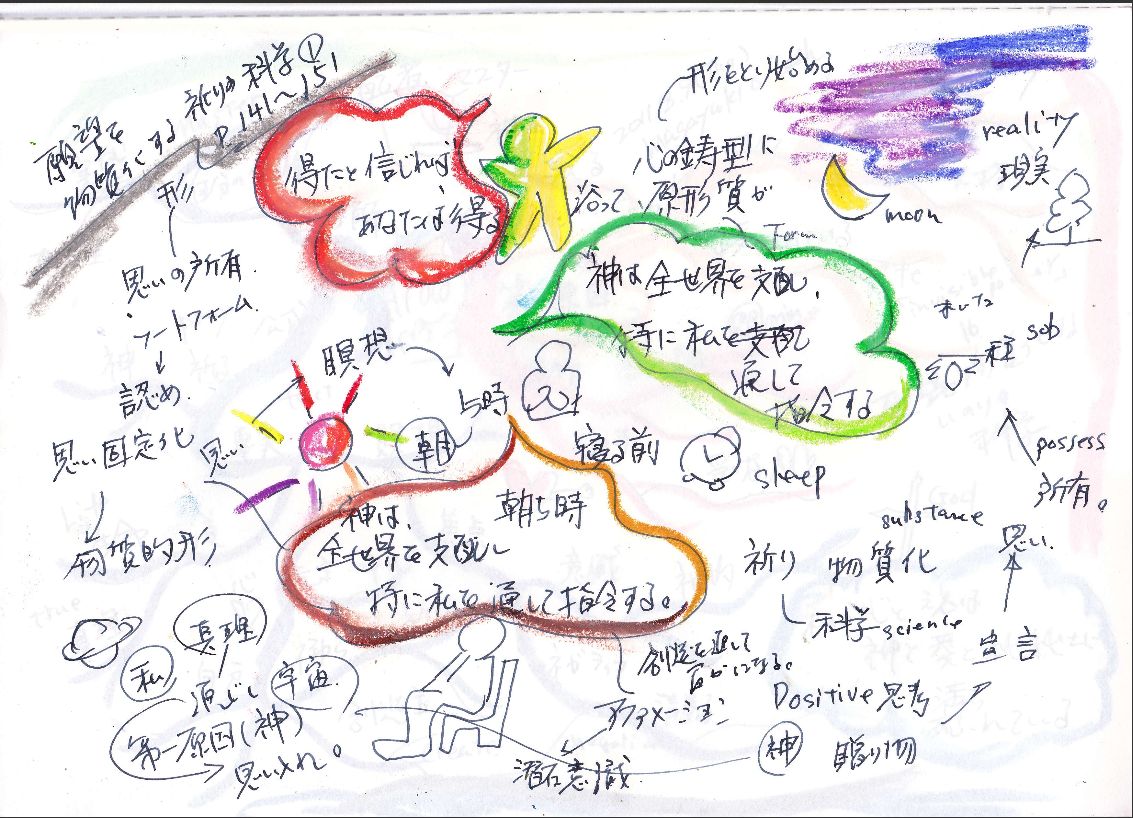 願望を
物質化する 祈りの科学①
P.141〜151
形
思いの所有
ソートフォーム
認め
思い固定化
物質的形
得たと信じれば
あなたは得る
形をとり始める
心の鋳型に
沿って 原形質が
moon
reality
現実
神は全世界を支配し、
特に私を支配して
通して
指令する
種
possess
所有。
瞑想
5時
朝
思い
寝る前
sheep
神は、 朝5時
全世界を支配し
特に私を通して指令する。
substance
祈り 物質化
思い
科学 science
宣言
Positive思考
神 贈り物
創造を通して
アファメーション
潜在意識
真理
私
宇宙
第一原因(神)
思い入れ。